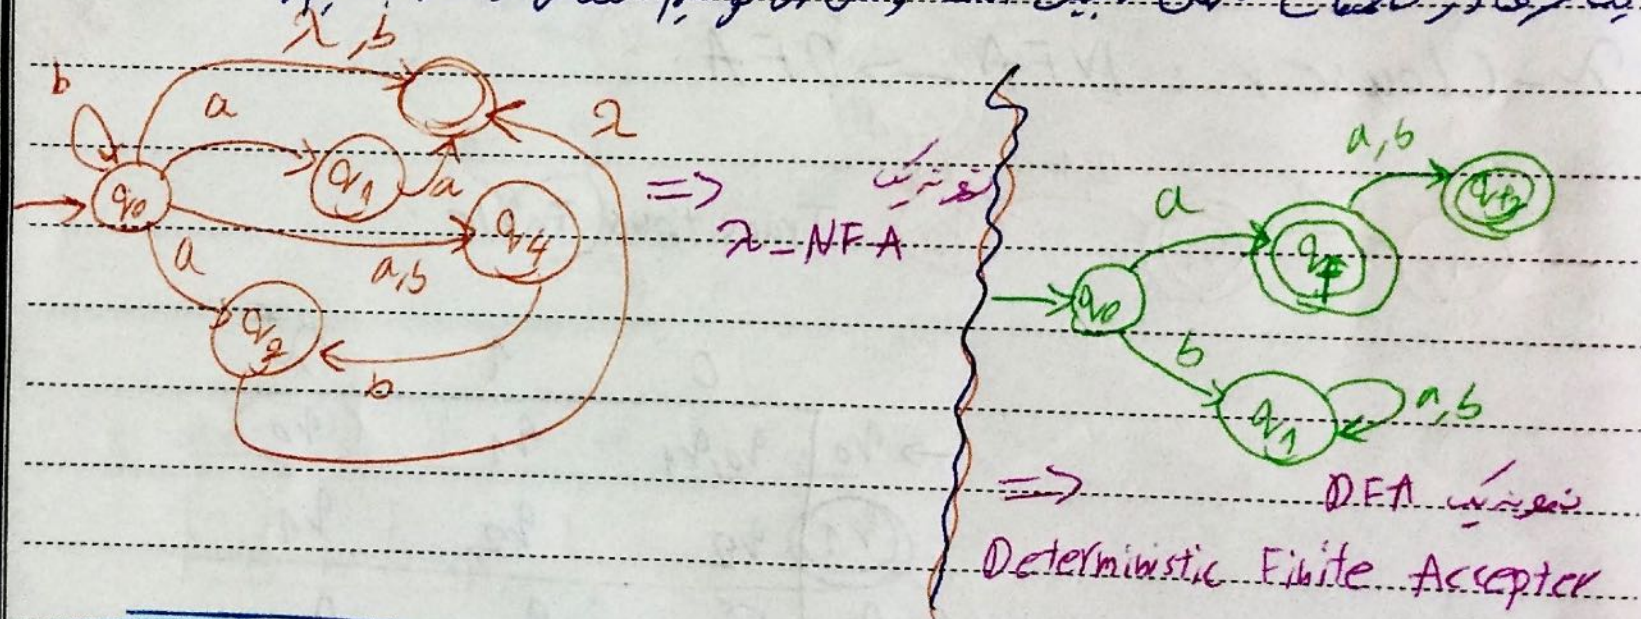 λ, b
b
a
λ
q0
q1
a
q4
a
a,b
q2
b
=>
نمونه یک
λ-NFA
a,b
a
q0
b
q1
a,b
=>
نمونه یک DFA
Deterministic Finite Accepter